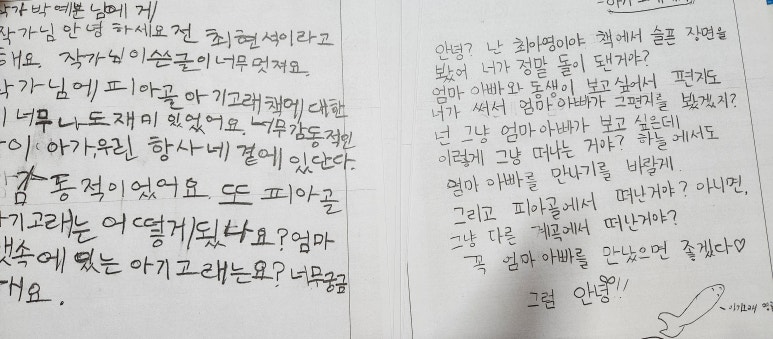 작가 박예쁜님에게
작가님 안녕하세요 전 최현석이라고
해요. 작가님이 쓴글이 너무 멋져요.
작가님에 피아골 아기고래책에 대한
너무나도 재미 있었어요. 너무 감동적인
아가, 우린 항상 네 곁에 있단다.
감동적이었어요. 또 피아골
아기고래는 어떻게 됬나요? 엄마
뱃속에 있는 아기고래는요? 너무 궁금
해요.
안녕? 난 최아영이야 책에서 슬픈 장면을
봤어 너가 정말 돌이 됀거야?
엄마 아빠와 동생이 보고 싶어서 편지도
너가 써서 엄마 아빠가 그편지를 봤겠지?
넌 그냥 엄마아빠가 보고 싶은데
이렇게 그냥 떠나는 거야? 하늘에서도
엄마 아빠를 만나기를 바랄게.
그리고 피아골에서 떠난거야? 아니면,
그냥 다른 계곡에서 떠난거야?
꼭 엄마아빠를 만났으면 좋겠다♡
그럼 안녕!!